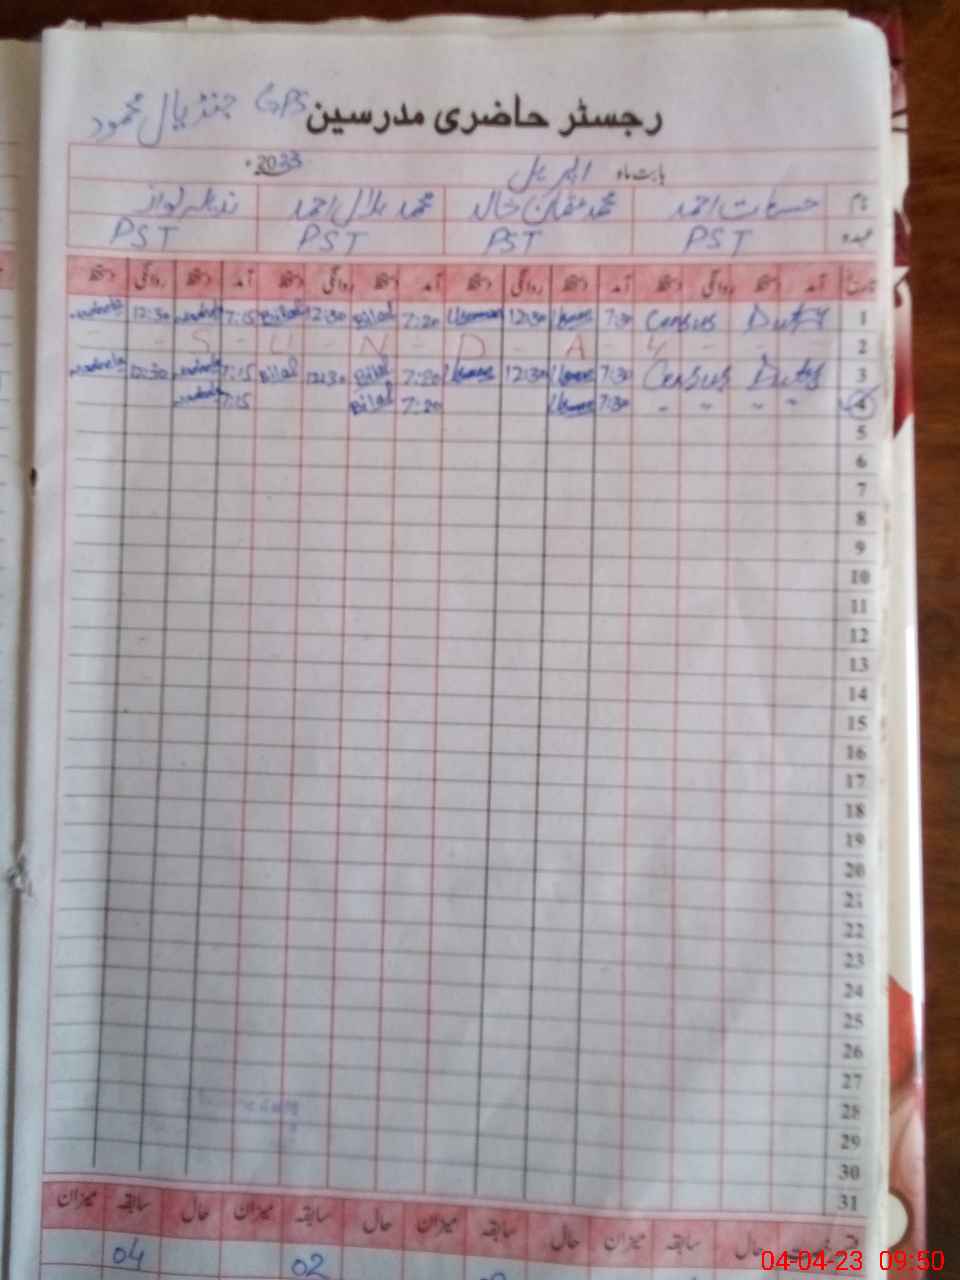 رجسٹر حاضری مدرسین GPS جنڈیال محمود
بابت ماہ اپریل 2023ء
نام حسنات احمد محمد عثمان خالد محمد بلال احمد
عہدہ PST PST PST PST
تاریخ آمد دستخط روانگی دستخط آمد دستخط روانگی دستخط آمد دستخط روانگی دستخط آمد دستخط روانگی دستخط
1 Census Duty 7:30 Usman 12:30 Usman 7:20 Bilal 12:30 Bilal 7:15 12:30
2 - S - U - N - D - A - Y - -
3 Census Duty 7:30 Usman 12:30 Usman 7:20 Bilal 12:30 Bilal 7:15 12:30
4 " " " " 7:30 Usman 7:20 Bilal 7:15
5
6
7
8
9
10
11
12
13
14
15
16
17
18
19
20
21
22
23
24
25
26
27
28
29
30
31
حال سابقہ میزان حال سابقہ میزان حال سابقہ میزان حال سابقہ میزان
02 04
04-04-23 09:50